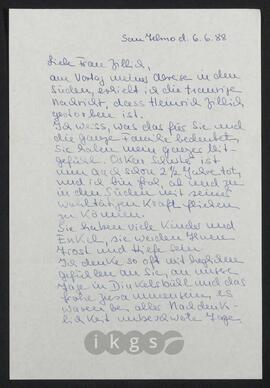 San Telmo d. 6.6.88
Liebe Frau Zillich,
am Vortag meiner Abreise in den
Süden, erhielt ich die traurige
Nachricht, dass Heinrich Zillich
gestorben ist.
Ich weiss, was das für Sie und
die ganze Familie bedeutet,
Sie haben mein ganzes Mit-
gefühl. Oskar Schuster ist
nun auch schon 2 ½ Jahre tot,
und ich bin froh, ab und zu
in den Süden mit seiner
wohltätigen Kraft fliehen
zu können.
Sie haben viele Kinder und
Enkel, sie werden Ihnen
Trost und Hilfe sein.
Ich denke so oft mit
gefühlen an Sie, an unsere
Tage in Dinkelsbühl und das
frohe Zusammensein, es
waren bei aller Nachdenk-
lichkeit unbeschwerte Tage.
ikgs